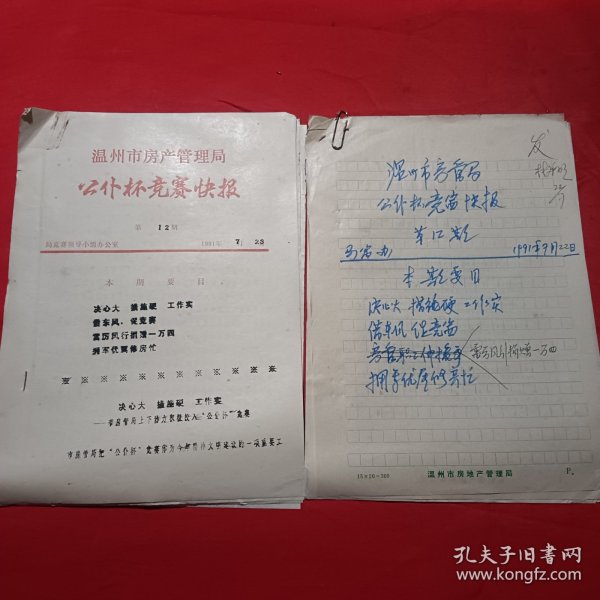 温州市房产管理局
公仆杯竞赛快报
第 12期
局竞赛领导小组办公室 1991年 7月 23
本期要目
决心大 措施硬 工作实
借东风、促竞赛
雷厉风行捐赠一万四
拥军优属修房忙
※ ※ ※ ※ ※ ※ ※ ※ ※ ※ ※ ※
决心大 措施硬 工作实
——市房管局上下协力积极投入"公仆杯"竞赛
市房管局把"公仆杯"竞赛作为今年精神文明建设的一项重要工
发
温州市房管局
公仆杯竞赛快报
第12期
局宣办 1991年7月22日
本期要目
决心大 措施硬 工作实
借东风 促竞赛
雷厉风行捐赠一万四
拥军优属修房忙
15×20=300
温州市房地产管理局
P。
孔夫子旧书网
www.kongfz.com